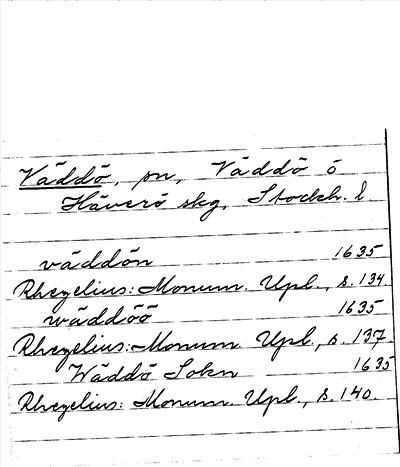 Väddö, sn, Väddö ö
Häverö skg, Stockh. l
väddön 1635
Rhezelius: Monum. Upl., s. 134.
wäddöö 1635
Rhezelius: Monum. Upl., s. 137.
Wäddö Sokn 1635
Rhezelius: Monum. Upl., s. 140.